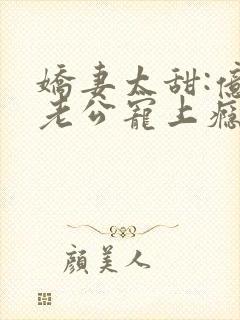 嬌妻太甜:億
老公寵上癮
顏美人